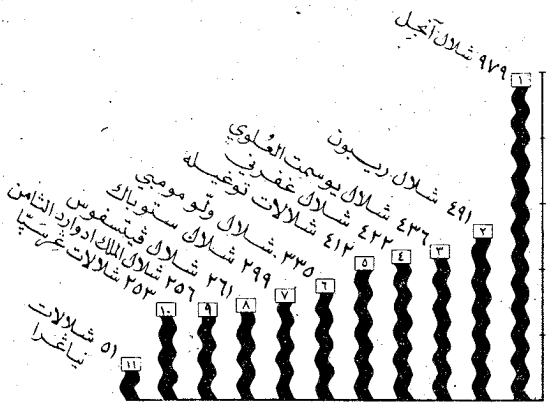 ٩٧٩ شلال آنجل
٤٩١ شلال ريبون
٤٣٦ شلال يوسمت العُلوي
٤٢٢ شلال غفرني
٤١٢ شلالات توغيله
٣٣٥ شلال ولّو مومبي
٢٩٩ شلاك ستوباك
٢٦١ شلال ڤينسفوس
٢٥٦ شلال الملك ادوارد الثامن
٢٥٣ شلالات غرسپّا
٥١ شلالات
نياغرا
١
٢
٣
٤
٥
٦
٧
٨
٩
١٠
١١